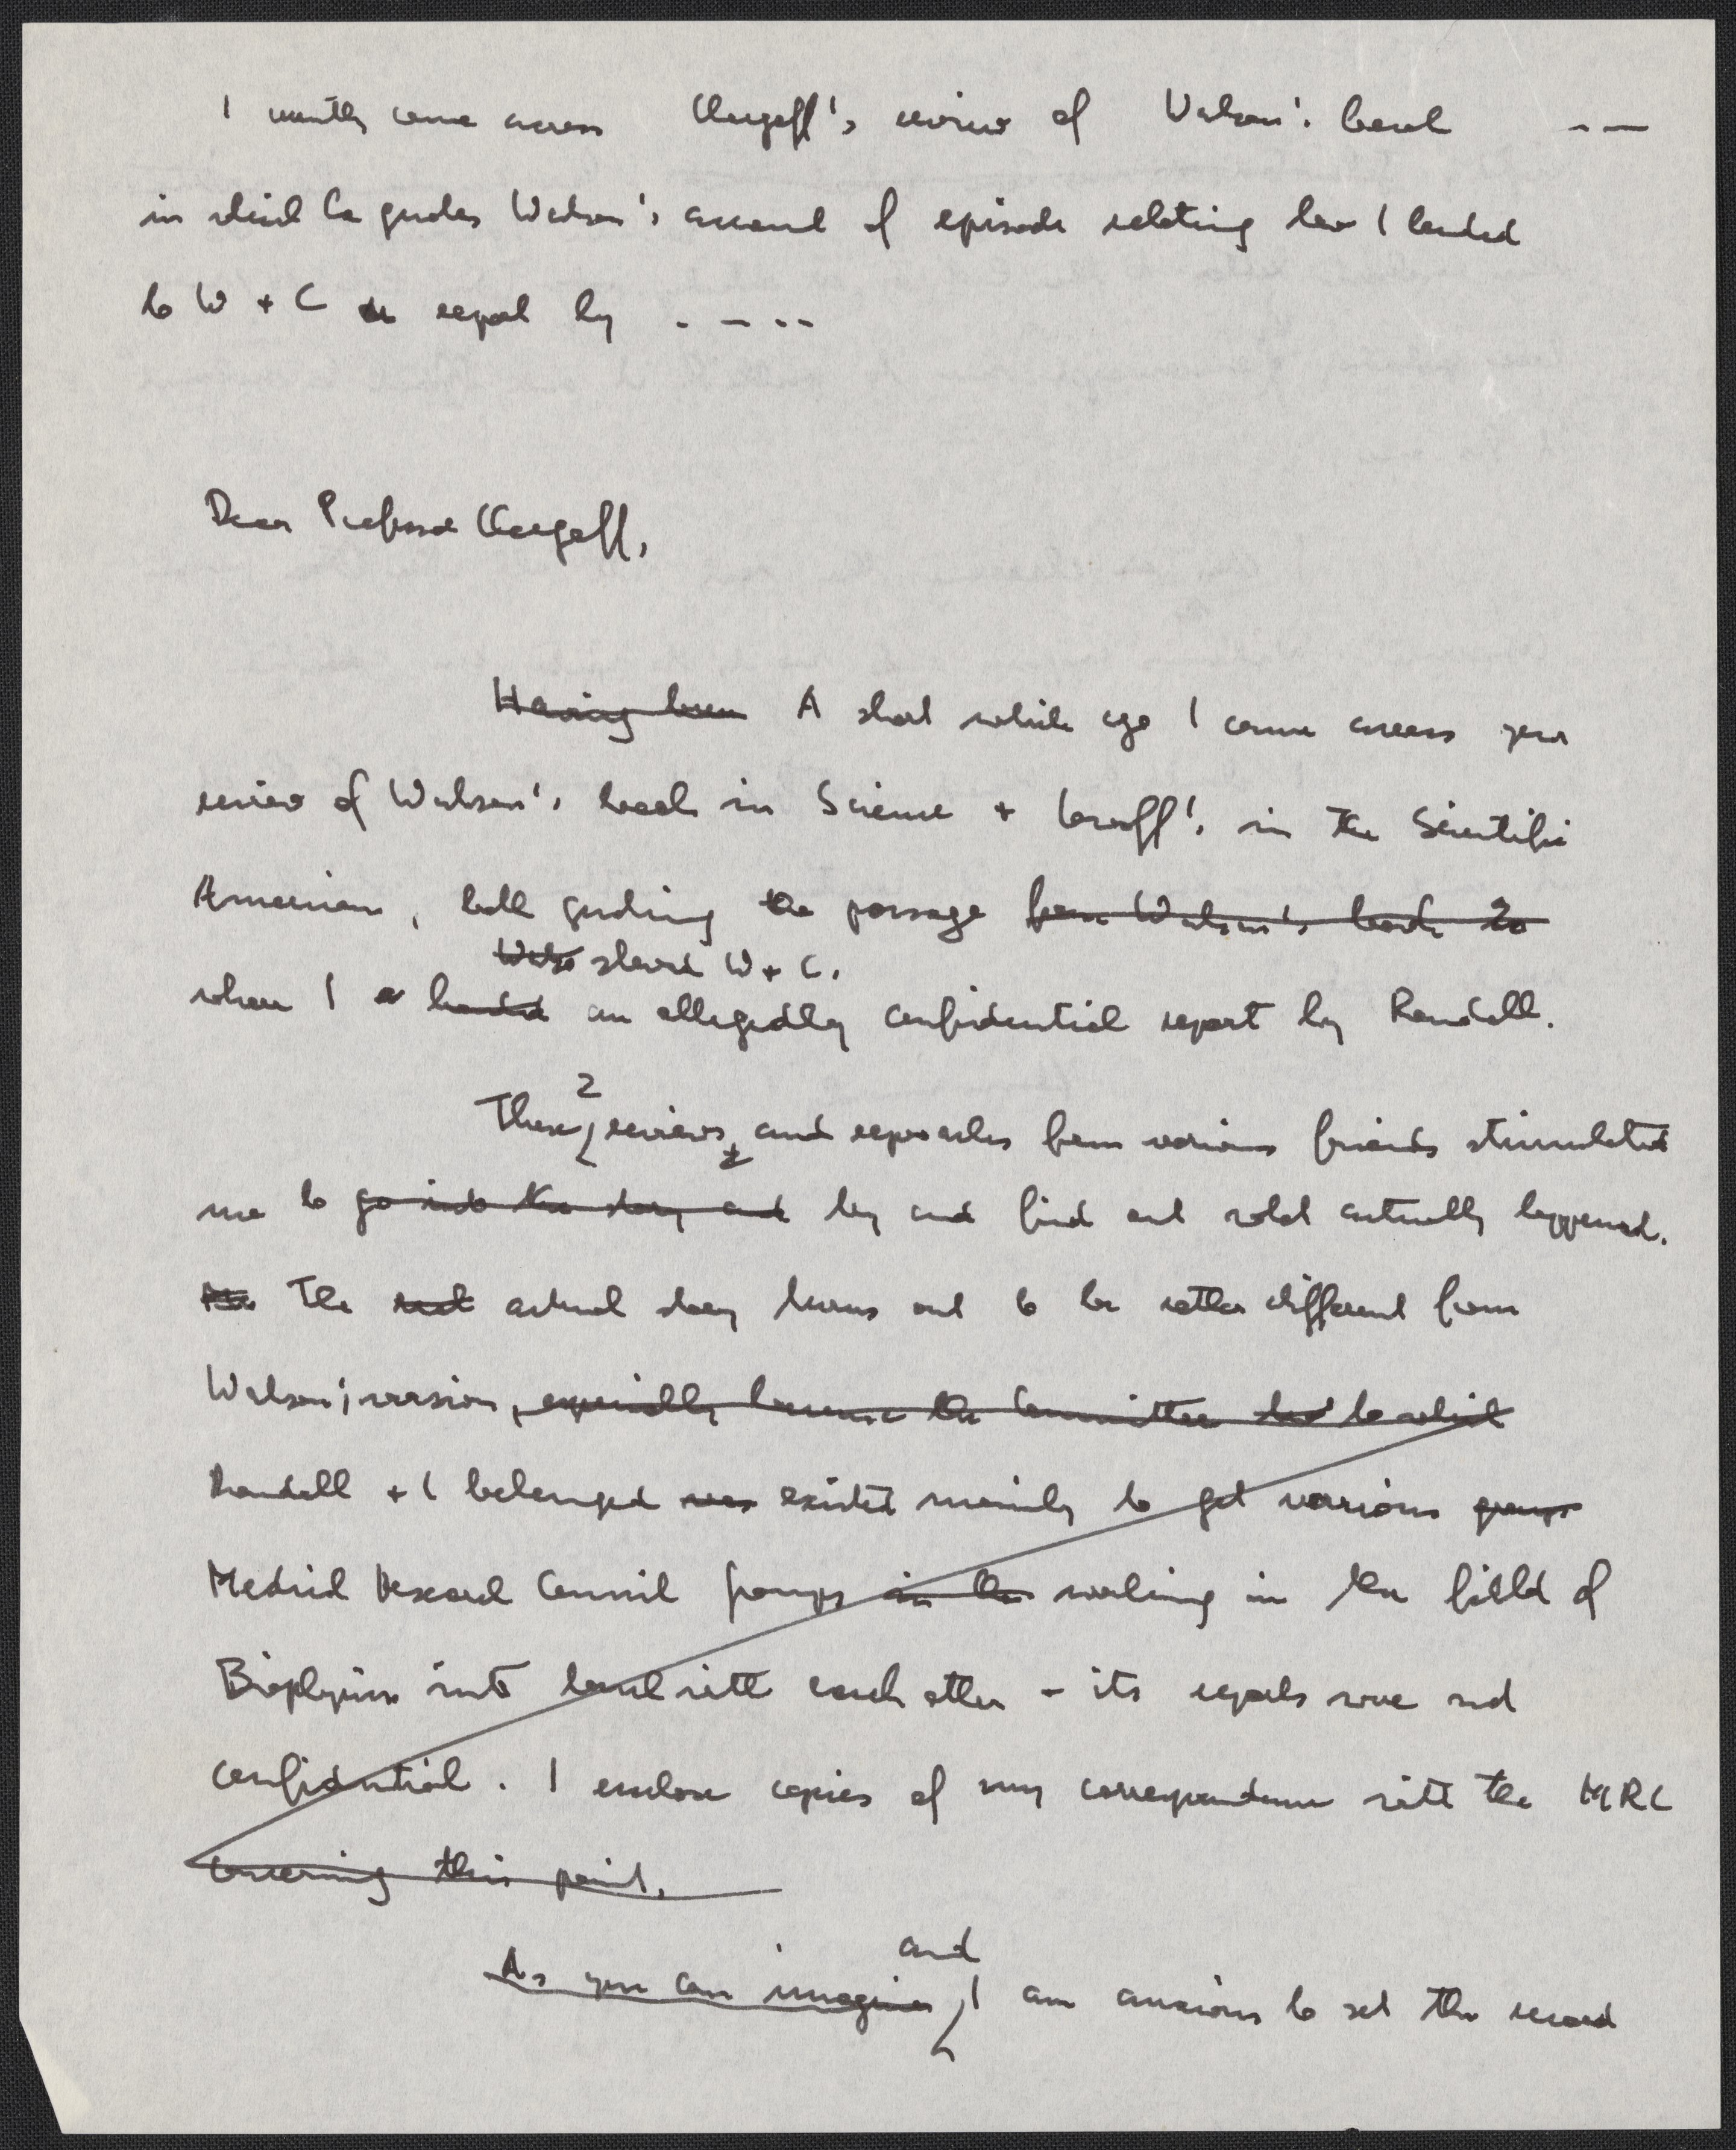 I recently came across Chargaff's review of Watson's book -- —
in which he quotes Watson's account of episode relating how I handed
to W + C a report by . — - -
Dear Professor Chargaff,
Having been A short while ago I came across your
review of Watson's book in Science + Lwoff's in the Scientific
American, both quoting the passage from Watson's book to
Wats showed W + C.
where I a handed an allegedly confidential report by Randall.
2
These reviews, and reproaches from various friends stimulated
me to go into the story and try and find out what actually happened.
The real actual story turns out to be rather different from
Watson's version, especially because the Committee to which
Randall + I belonged was existed mainly to get various groups
Medical Research Council groups in the working in the field of
Biophysics into touch with each other – its reports were not
confidential. I enclose copies of my correspondence with the MRC
concerning this point.
and
As you can imagine, I am anxious to set the record